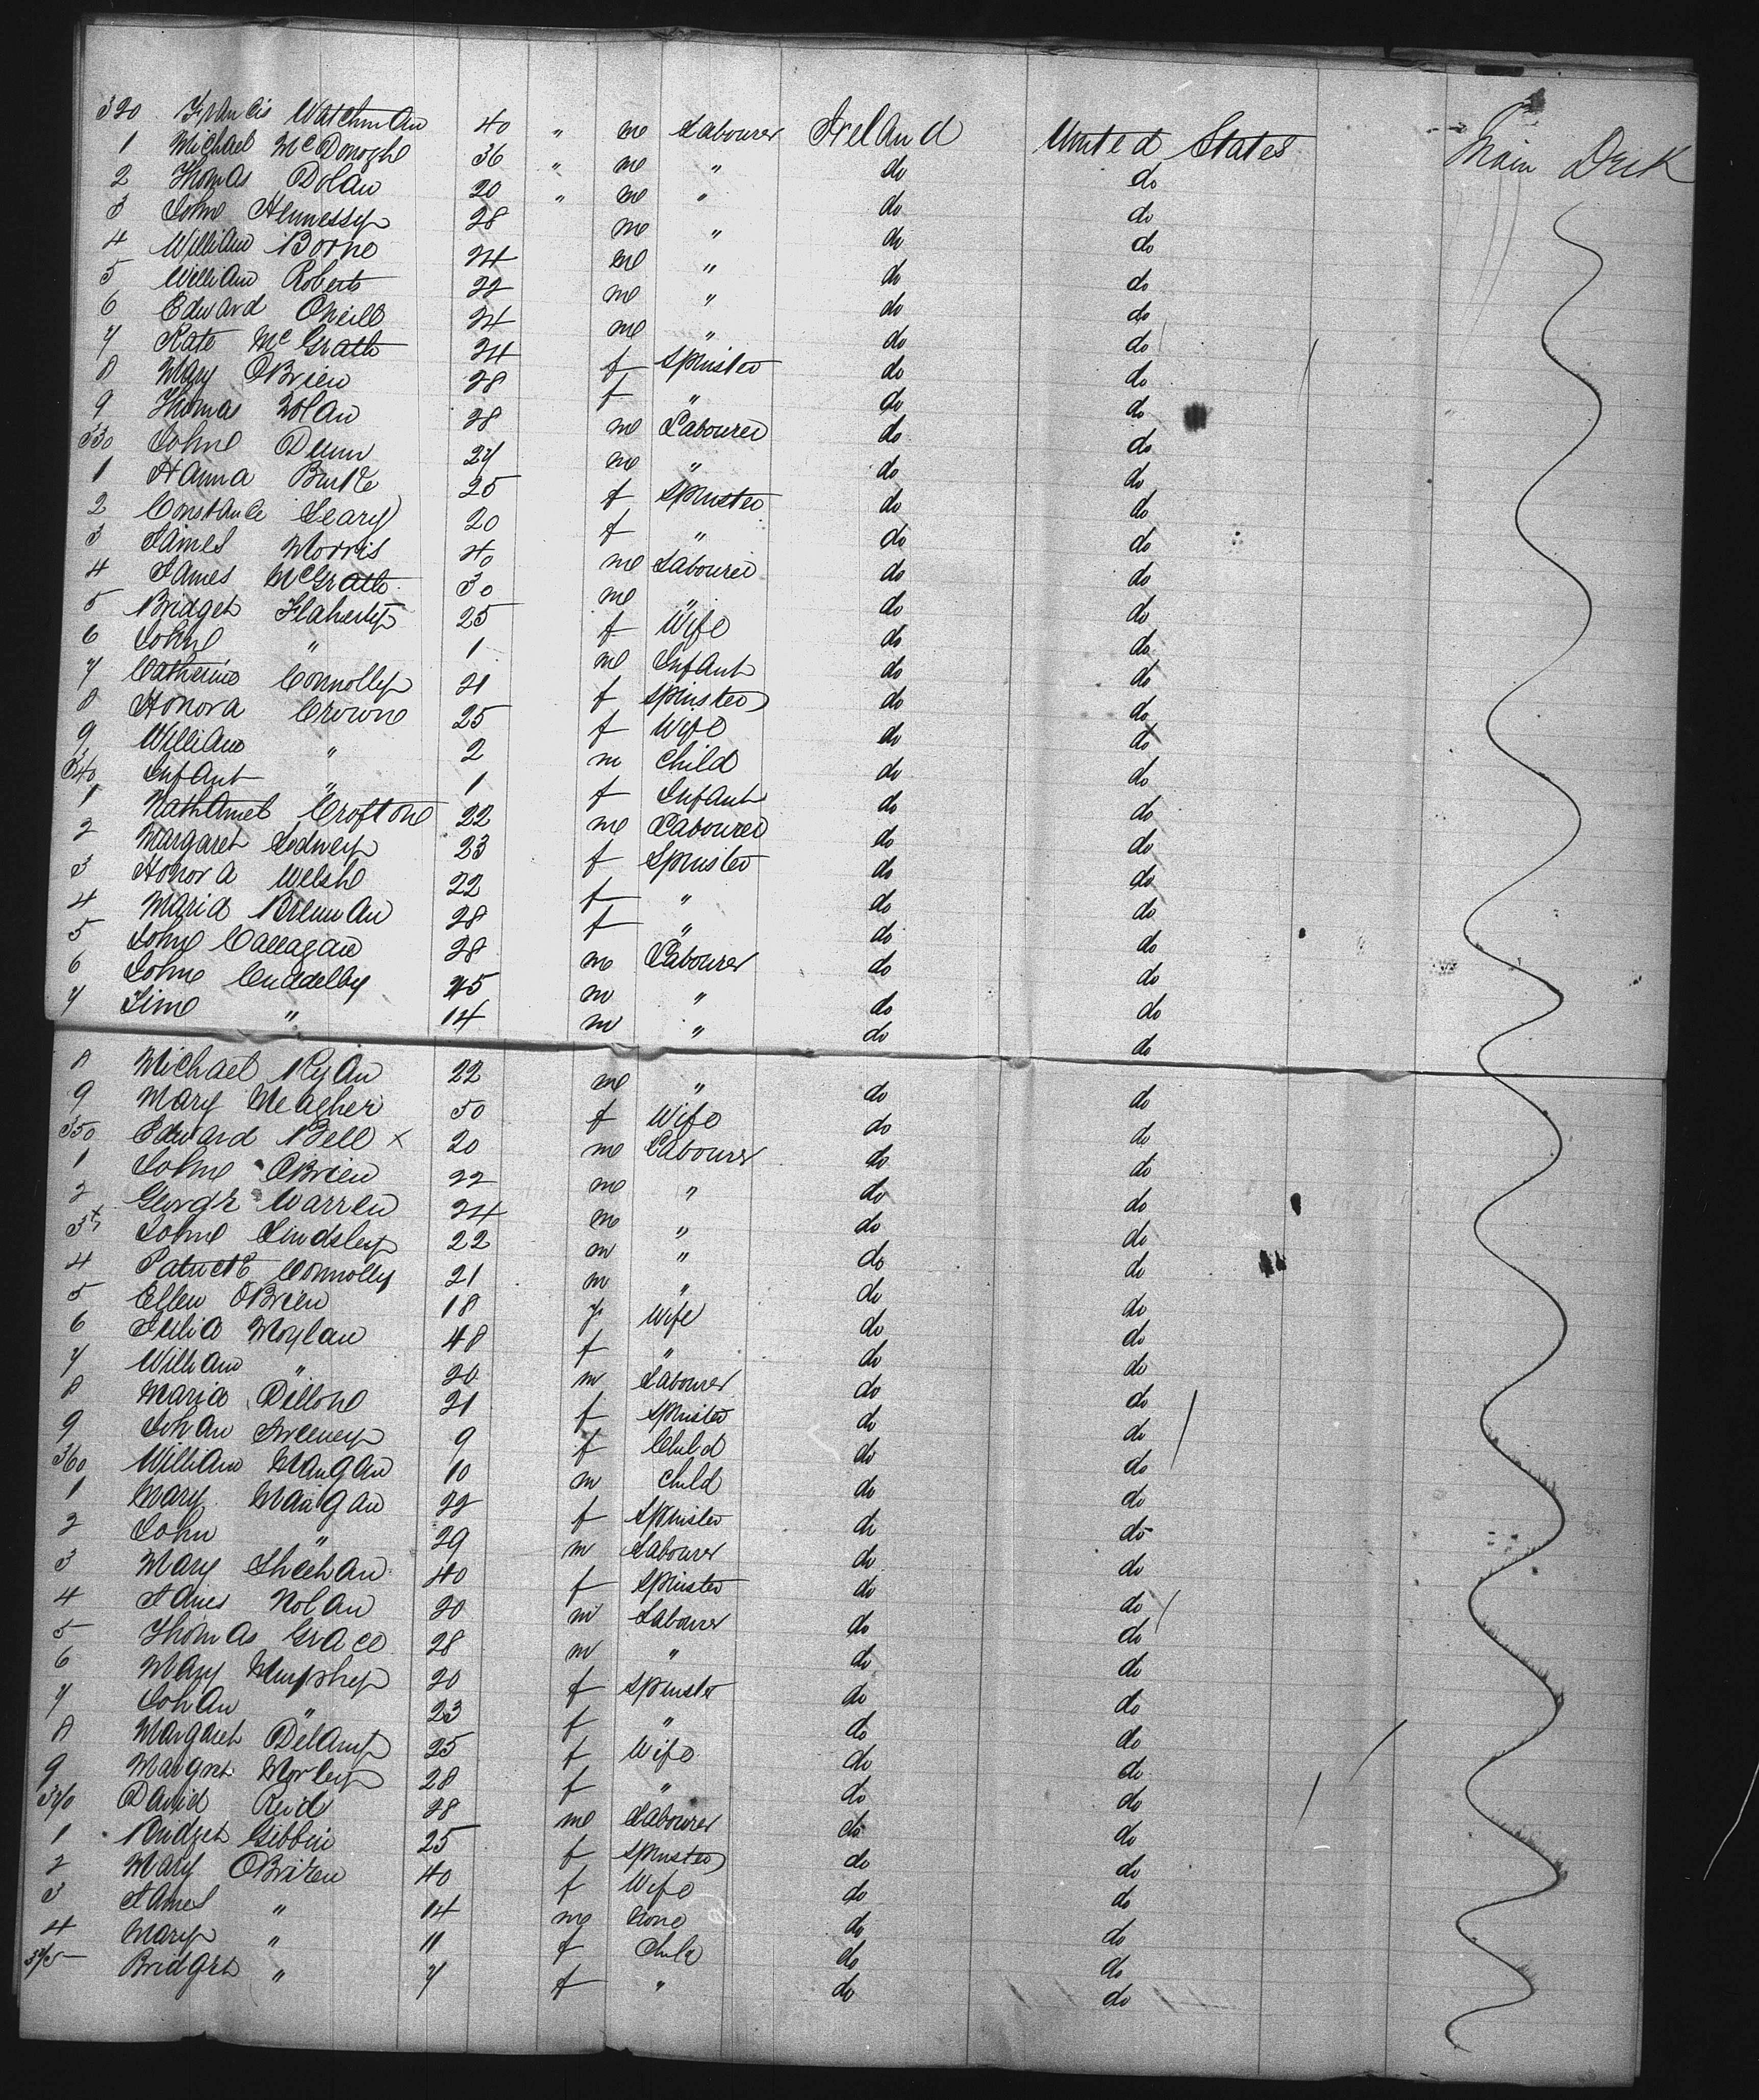 320 Francis Watchman 40 " m Labourer Ireland United States Main Deck
1 Michael McDonogh 36 " m " do do
2 Thomas Dolan 20 " m " do do
3 John Hennessy 28 m " do do
4 William Borne 24 m " do do
5 William Roberts 22 m " do do
6 Edward Oneill 24 m " do do
7 Kate McGrath 24 f Spinster do do
8 Mary OBrien 28 f " do do
9 Thomas Dolan 28 m Labourer do do
330 John Dunn 27 m " do do
1 Hanna Burke 25 f Spinster do do
2 Constance Leary 20 f " do do
3 James Morris 40 m Labourer do do
4 James McGrath 30 m " do do
5 Bridget Flaherty 25 f Wife do do
6 John " 1 m Infant do do
7 Catherine Connolly 21 f Spinster do do
8 Honora Crowne 25 f Wife do do
9 William " 2 m Child do do
340 Infant " 1 f Infant do do
1 Nathaniel Crofton 22 m Labourer do do
2 Margaret 23 f Spinster do do
3 Honora Welsh 22 f " do do
4 Maria Brennan 28 f " do do
5 John Callagan 28 m Labourer do do
6 John Cuddelby 45 m " do do
7 Jim " 14 m " do do
8 Michael Ryan 22 m " do do
9 Mary Meagher 50 f Wife do do
350 Edward Bell x 20 m Labourer do do
1 John OBrien 22 m " do do
2 George Warren 24 m " do do
3 John Lindsley 22 m " do do
4 Patrick Connolly 21 m " do do
5 Ellen OBrien 18 f Wife do do
6 Julia Moylan 48 f " do do
7 William " 20 m Labourer do do
8 Maria Dillon 21 f Spinster do do
9 Johan Sweeney 9 f Child do do
360 William Mangan 10 m Child do do
1 Mary Mangan 22 f Spinster do do
2 John " 29 m Labourer do do
3 Mary Sheehan 40 f Spinster do do
4 James Nolan 20 m Labourer do do
5 Thomas Grace 28 m " do do
6 Mary Murphy 20 f Spinster do do
7 Johan " 23 f " do do
8 Margaret Delany 25 f Wife do do
9 Margret Morley 28 f " do do
370 David Reid 28 m Labourer do do
1 Bridget Gibbin 25 f Spinster do do
2 Mary OBrien 40 f Wife do do
3 James " 14 m None do do
4 Mary " 11 f Child do do
375 Bridget " 7 f " do do